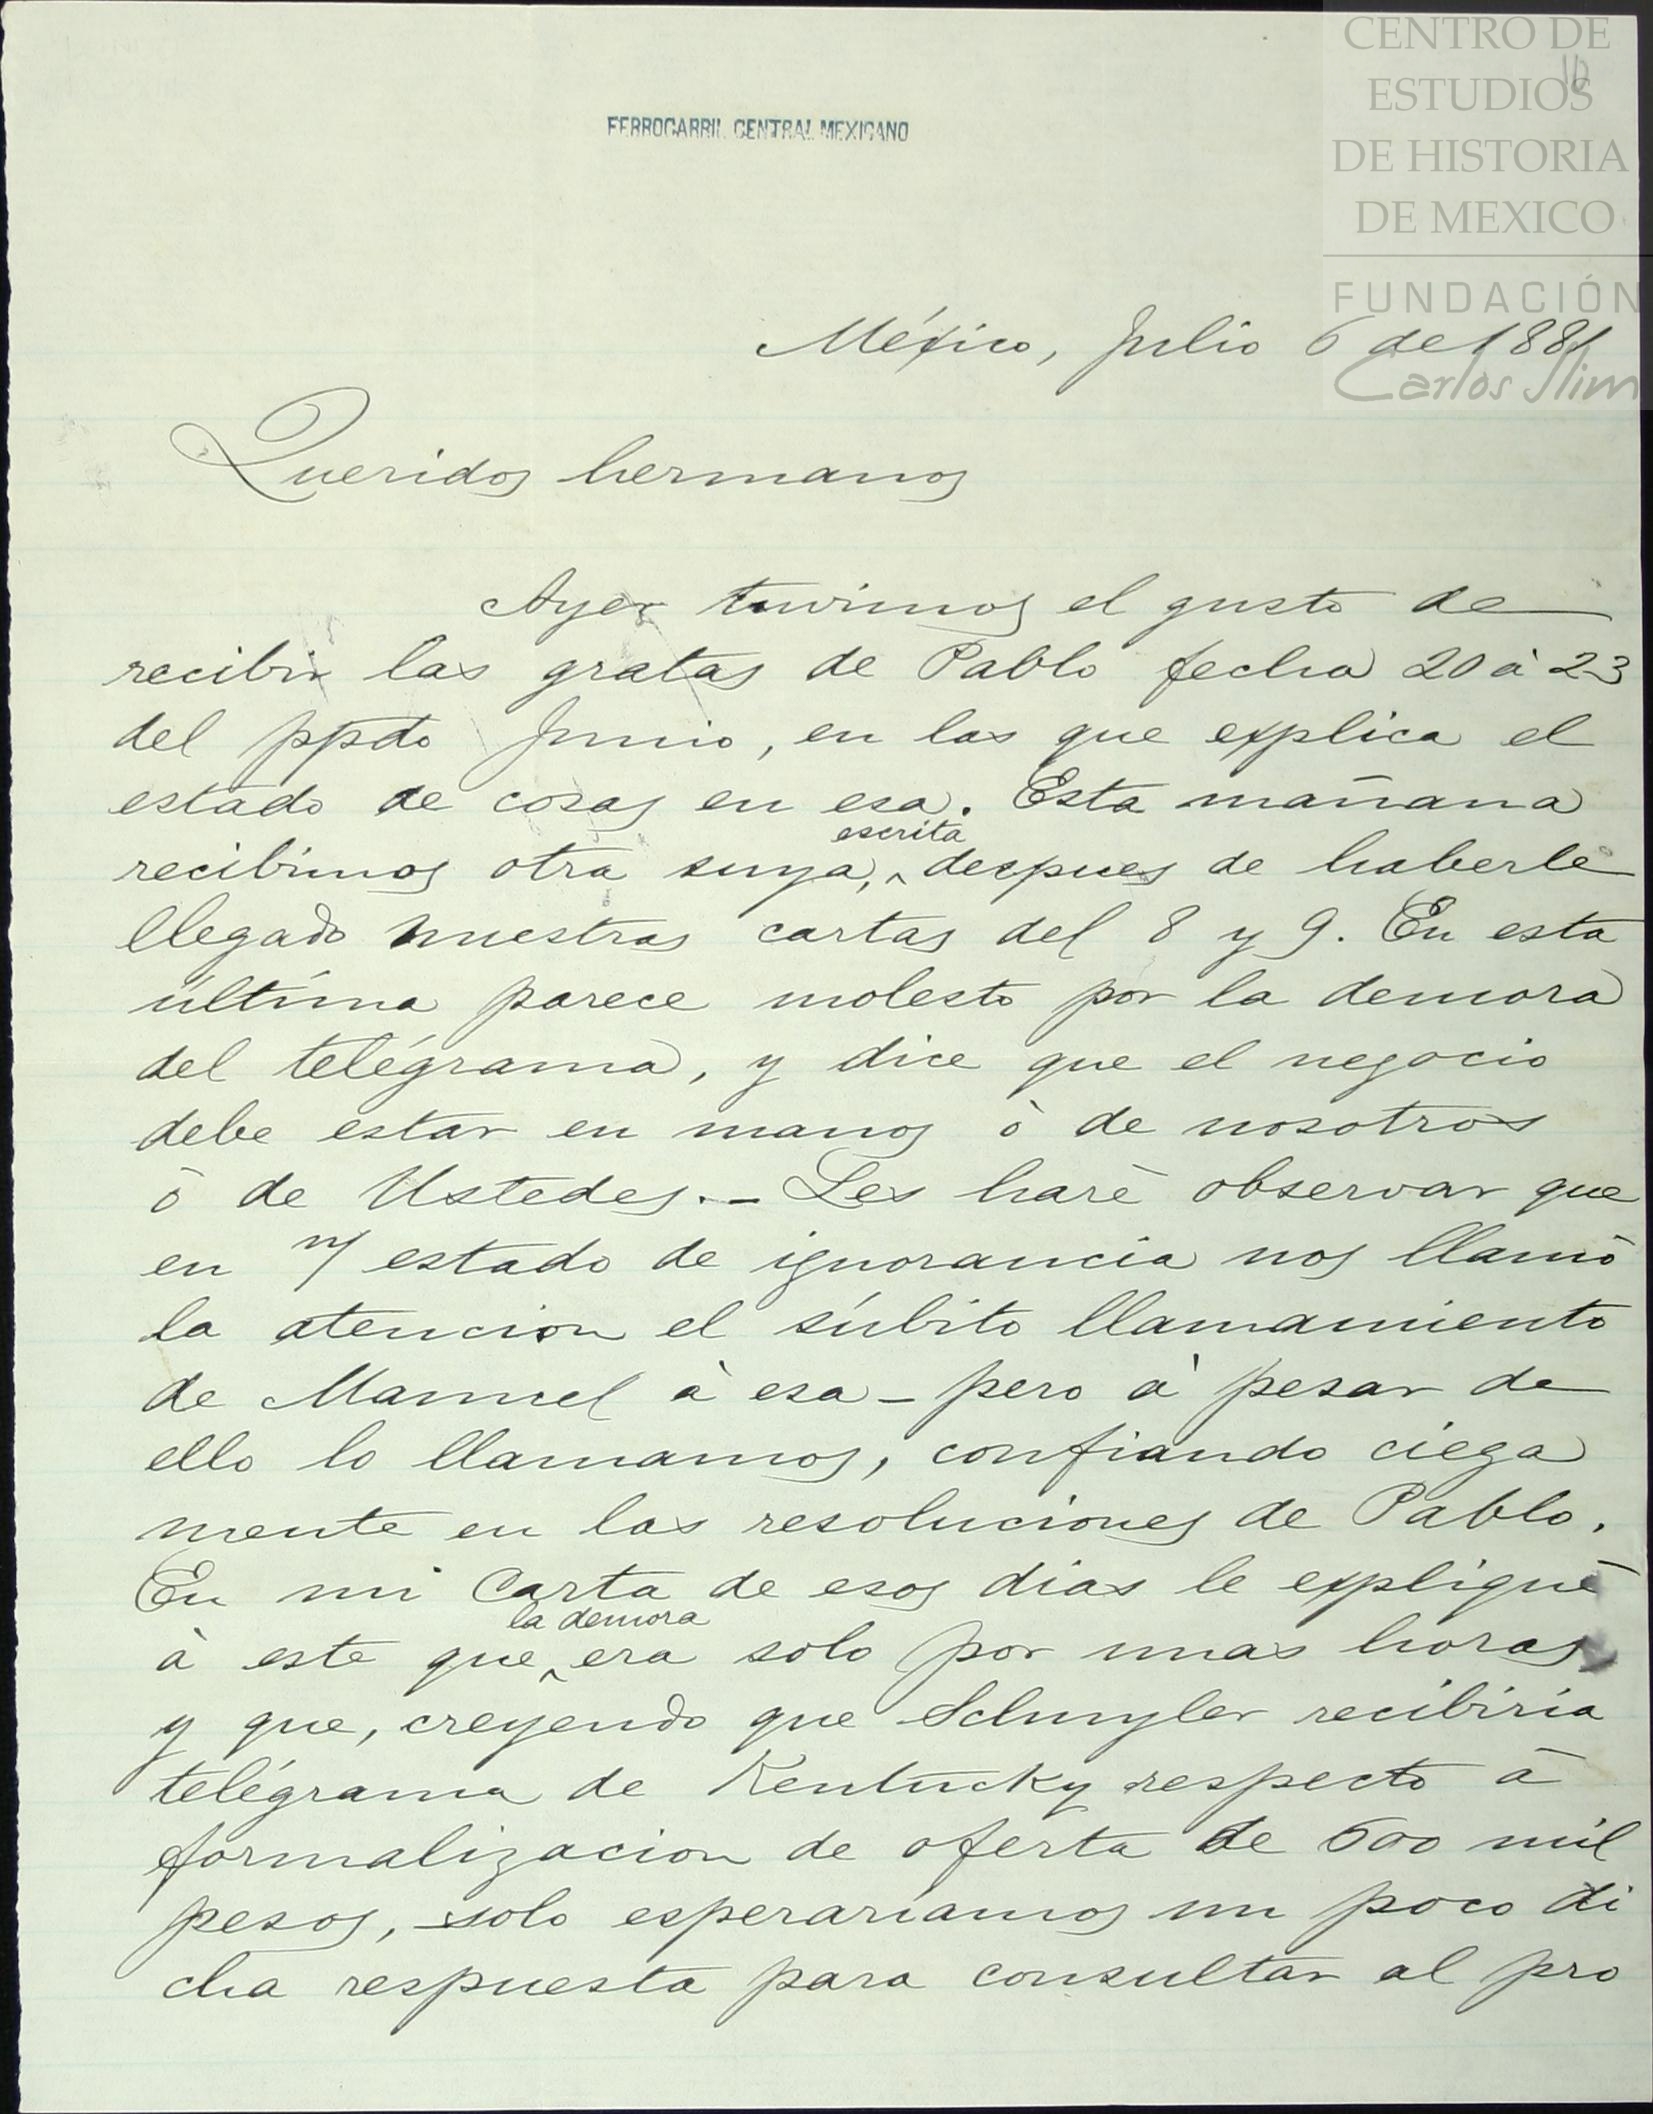 CENTRO DE
ESTUDIOS
DE HISTORIA
DE MEXICO
FUNDACIÓN
Carlos Slim
FERROCARRIL CENTRAL MEXICANO
México, Julio 6 de 1881
Queridos hermanos
Ayer tuvimos el gusto de
recibir las gratas de Pablo fecha 20 à 23
del ppdo Junio, en las que explica el
estado de cosas en esa. Esta mañana
recibimos otra suya, escrita despues de haberle
llegado nuestras cartas del 8 y 9. En esta
última parece molesto por la demora
del telégrama, y dice que el negocio
debe estar en manos ò de nosotros
ò de Ustedes. - Les harè observar que
en n/ estado de ignorancia nos llamò
la atencion el súbito llamamiento
de Manuel à esa - pero à pesar de
ello lo llamamos, confiando ciega
mente en las resoluciones de Pablo.
En mi Carta de esos dias le expliqué
à este que la demora era solo por unas horas
y que, creyendo que Schuyler recibiria
telégrama de Kentucky respecto à
formalizacion de oferta de 600 mil
pesos, solo esperaríamos un poco di
cha respuesta para consultar al pro